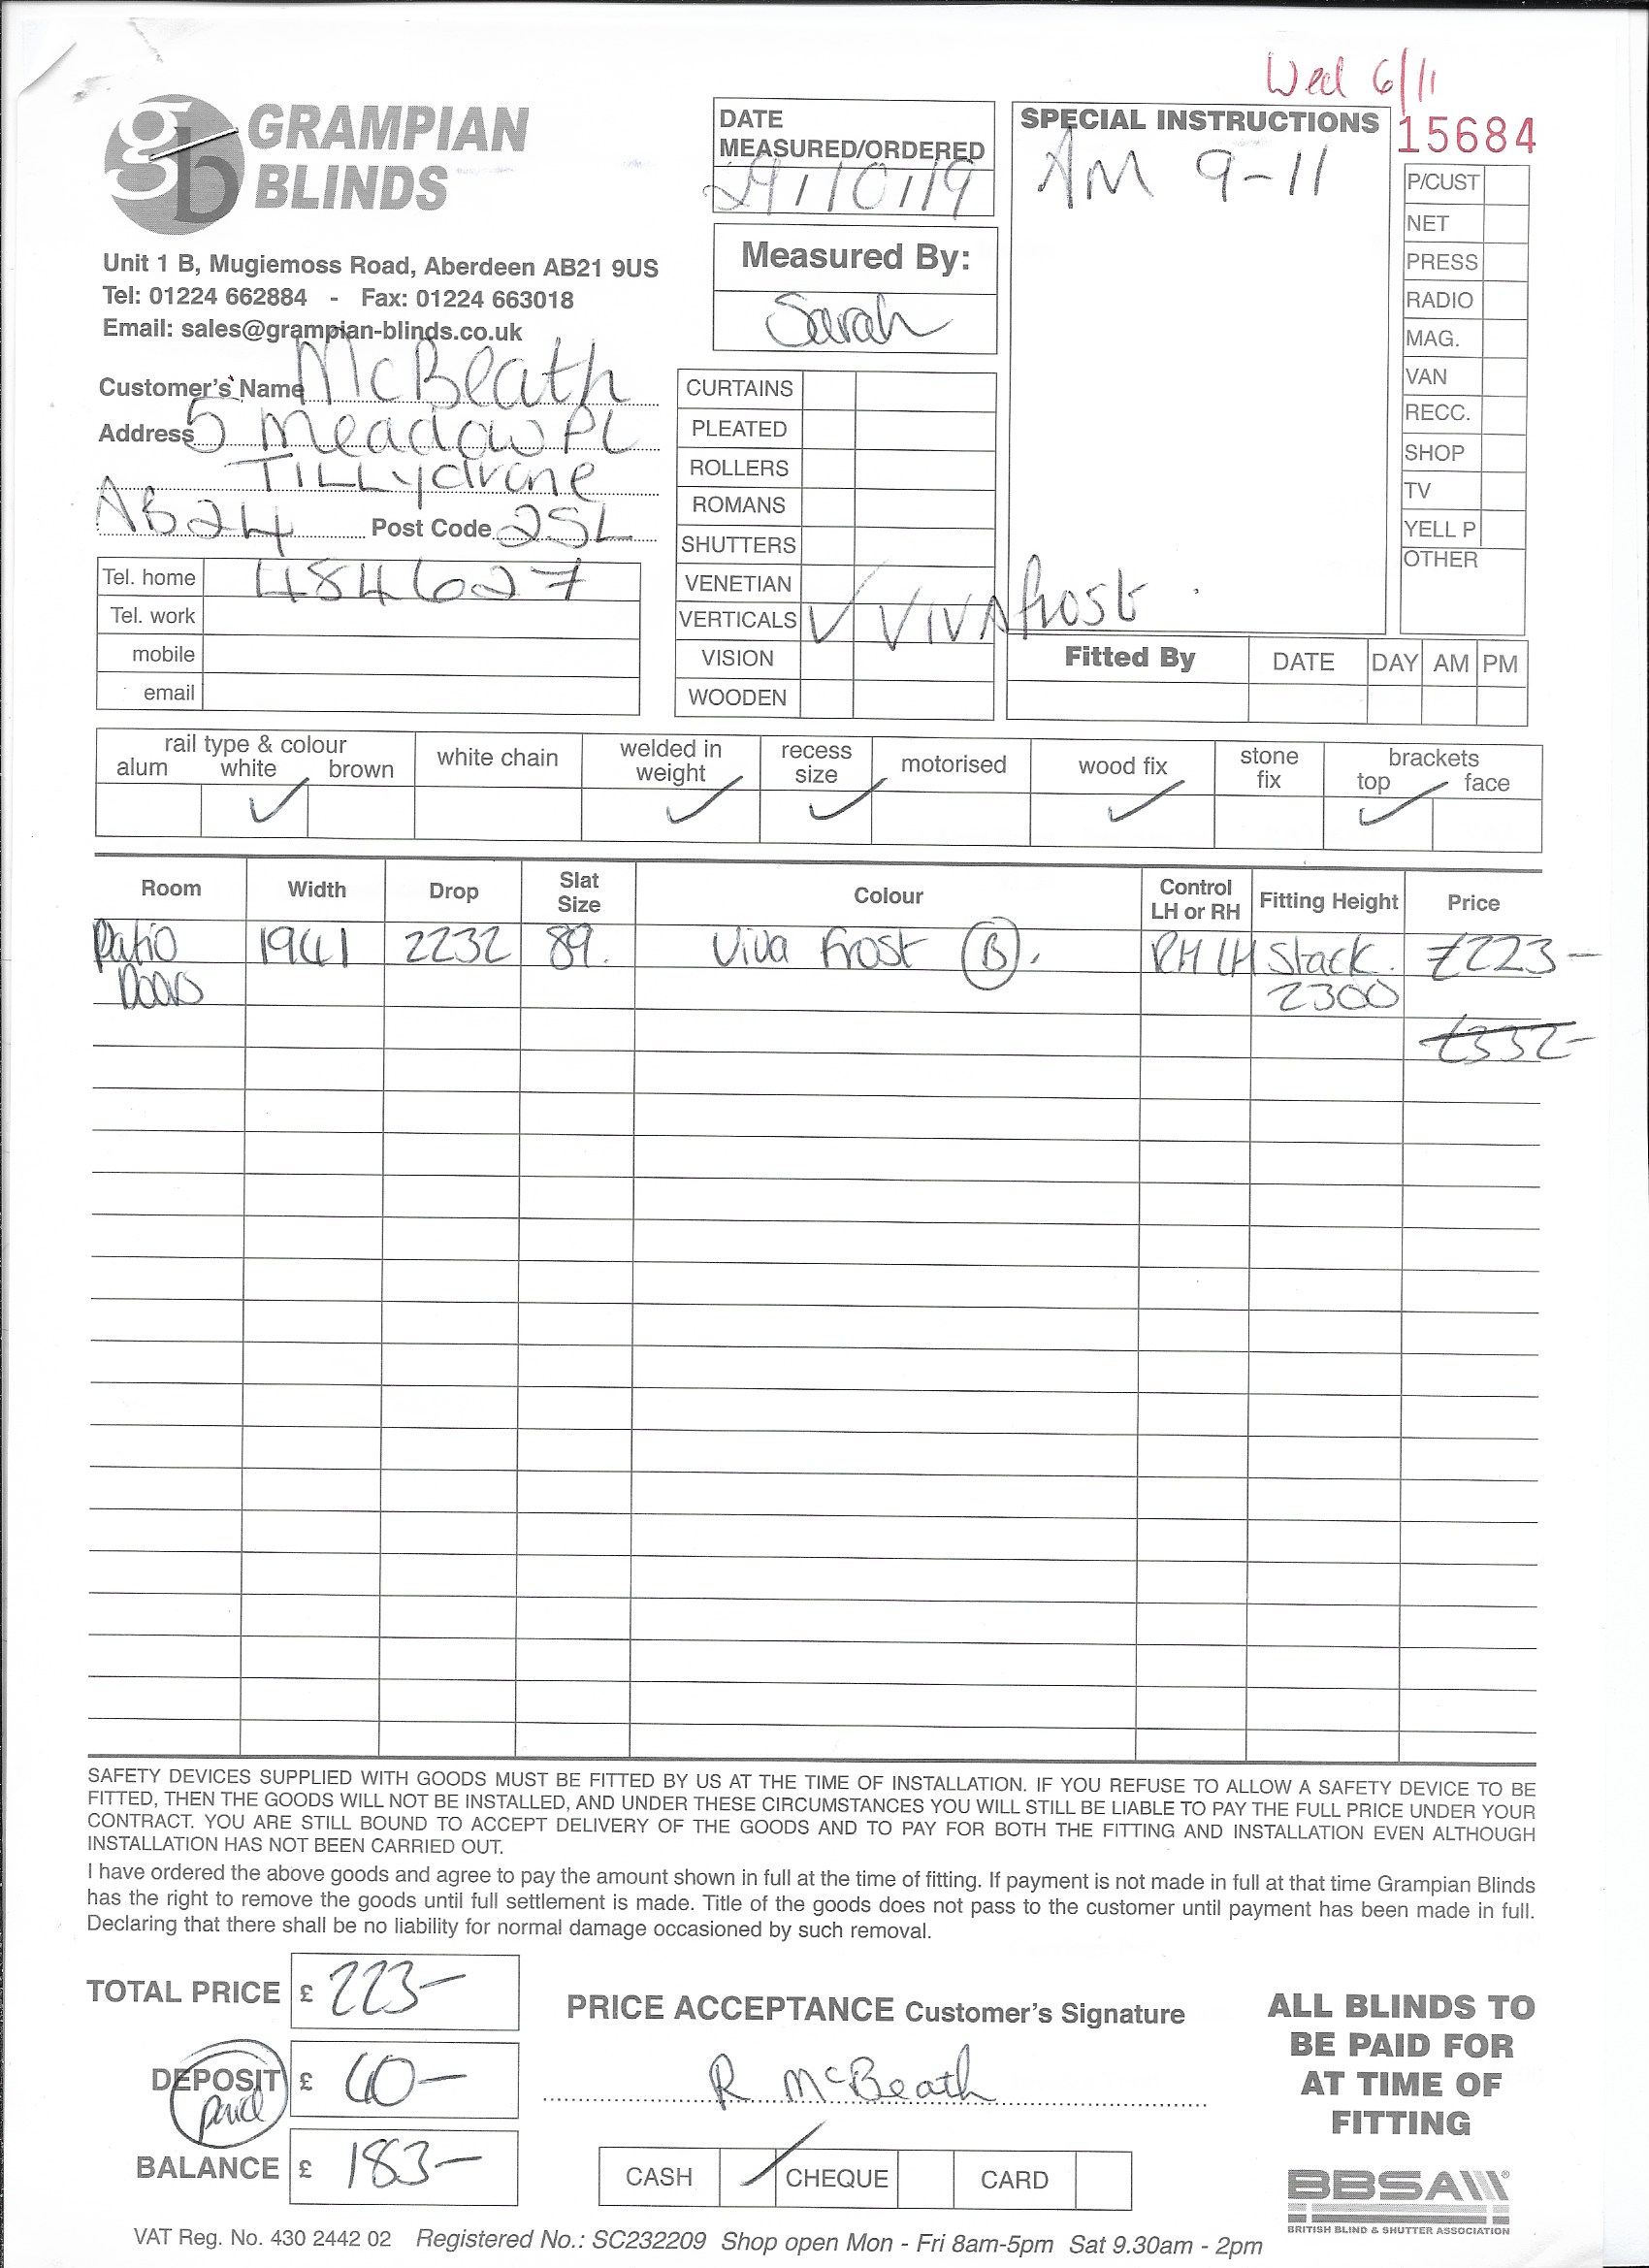 Wed 6/11
15684
gb GRAMPIAN
BLINDS
Unit 1 B, Mugiemoss Road, Aberdeen AB21 9US
Tel: 01224 662884 - Fax: 01224 663018
Email: sales@grampian-blinds.co.uk
Customer's Name McBeath
Address 5 Meadow PL
TILLydrone
AB24 Post Code 2SL
Tel. home 484627
Tel. work
mobile
email
DATE
MEASURED/ORDERED
29/10/19
Measured By:
Sarah
CURTAINS
PLEATED
ROLLERS
ROMANS
SHUTTERS
VENETIAN
VERTICALS ✓ VIVA frost
VISION
WOODEN
SPECIAL INSTRUCTIONS
AM 9-11
P/CUST
NET
PRESS
RADIO
MAG.
VAN
RECC.
SHOP
TV
YELL P
OTHER
Fitted By DATE DAY AM PM
rail type & colour
alum white ✓ brown
white chain
welded in
weight ✓
recess
size ✓
motorised
wood fix ✓
stone
fix
brackets
top ✓ face
Room Width Drop Slat Size Colour Control LH or RH Fitting Height Price
Patio 1941 2232 89. Viva Frost (B). RH LH Stack. £223-
Doors 2300
£332-
SAFETY DEVICES SUPPLIED WITH GOODS MUST BE FITTED BY US AT THE TIME OF INSTALLATION. IF YOU REFUSE TO ALLOW A SAFETY DEVICE TO BE
FITTED, THEN THE GOODS WILL NOT BE INSTALLED, AND UNDER THESE CIRCUMSTANCES YOU WILL STILL BE LIABLE TO PAY THE FULL PRICE UNDER YOUR
CONTRACT. YOU ARE STILL BOUND TO ACCEPT DELIVERY OF THE GOODS AND TO PAY FOR BOTH THE FITTING AND INSTALLATION EVEN ALTHOUGH
INSTALLATION HAS NOT BEEN CARRIED OUT.
I have ordered the above goods and agree to pay the amount shown in full at the time of fitting. If payment is not made in full at that time Grampian Blinds
has the right to remove the goods until full settlement is made. Title of the goods does not pass to the customer until payment has been made in full.
Declaring that there shall be no liability for normal damage occasioned by such removal.
TOTAL PRICE £ 223-
DEPOSIT £ 40-
paid
BALANCE £ 183-
PRICE ACCEPTANCE Customer's Signature
R McBeath
CASH ✓ CHEQUE CARD
ALL BLINDS TO
BE PAID FOR
AT TIME OF
FITTING
BBSA
BRITISH BLIND & SHUTTER ASSOCIATION
VAT Reg. No. 430 2442 02 Registered No.: SC232209 Shop open Mon - Fri 8am-5pm Sat 9.30am - 2pm